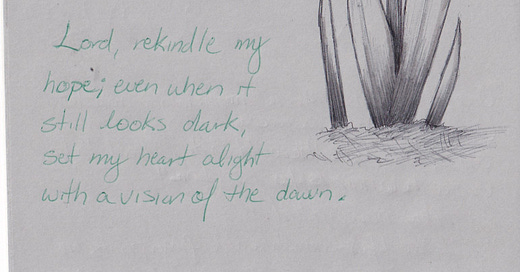 Lord, rekindle my
hope; even when it
still looks dark,
set my heart alight
with a vision of the dawn.